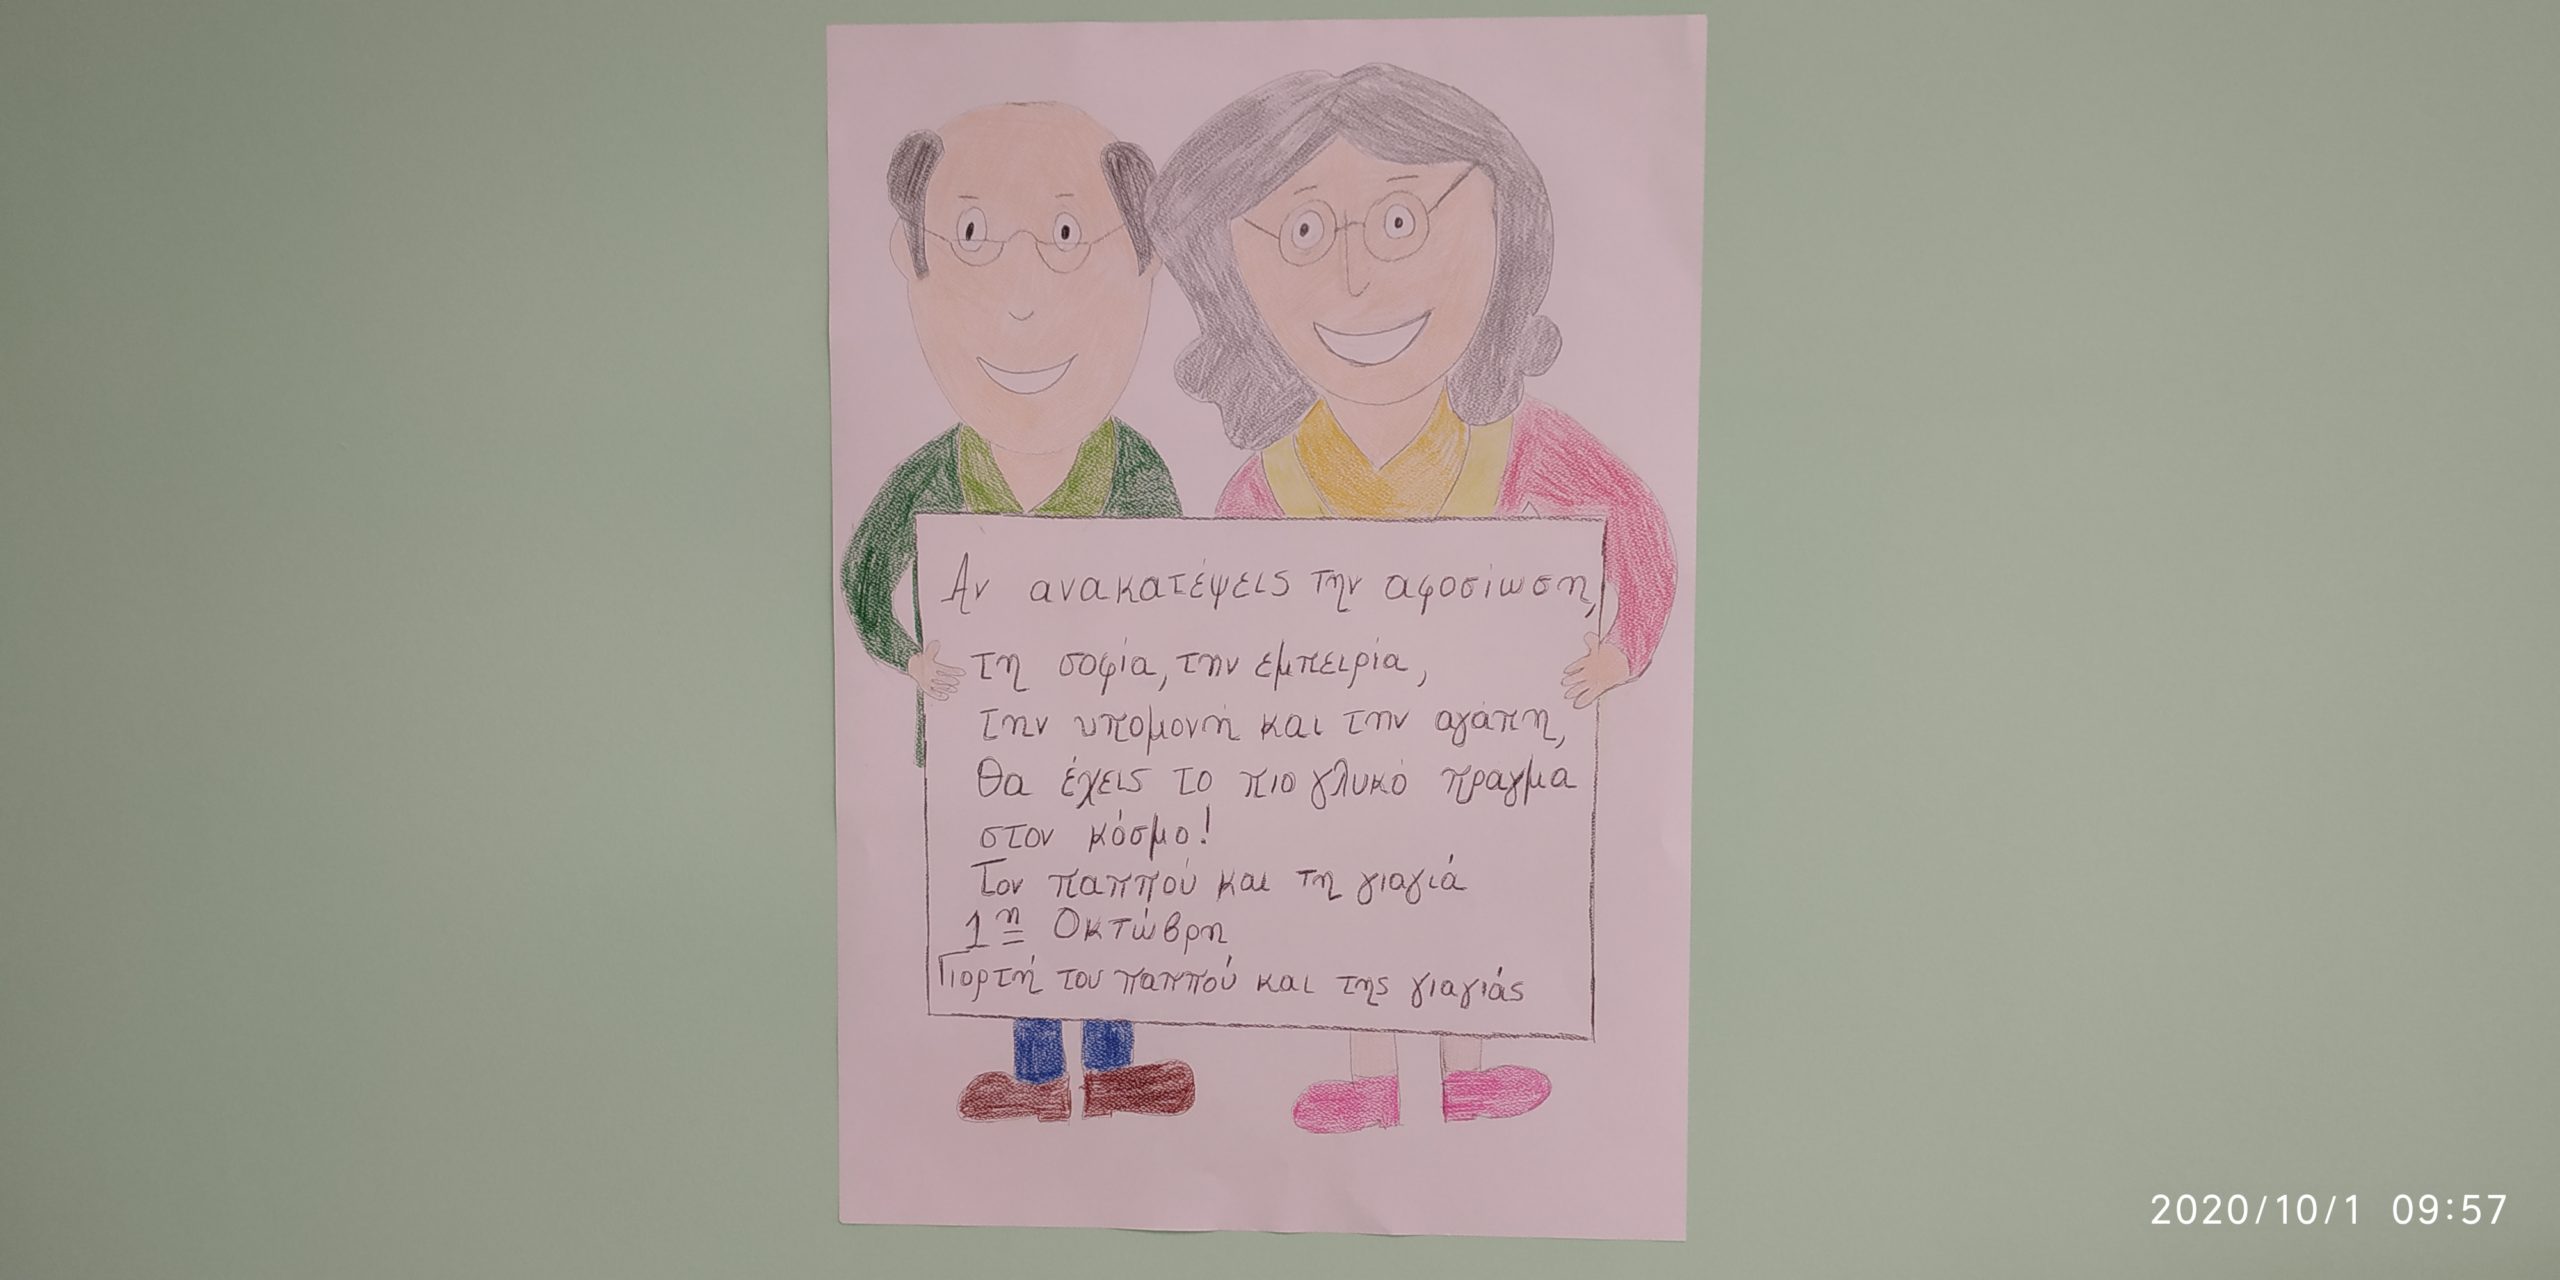 Αν ανακατέψεις την αφοσίωση,
τη σοφία, την εμπειρία,
την υπομονή και την αγάπη,
θα έχεις το πιο γλυκό πράγμα
στον κόσμο!
Τον παππού και τη γιαγιά
1η Οκτώβρη
Γιορτή του παππού και της γιαγιάς
2020/10/1 09:57